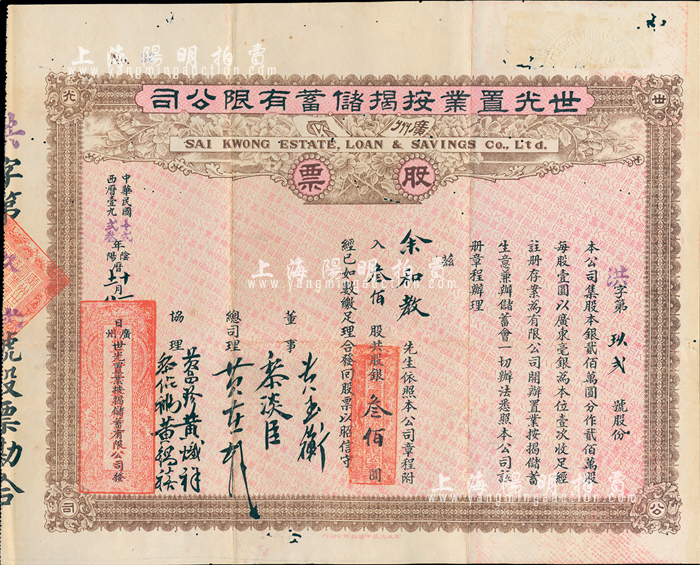 No.
世光置業按揭儲蓄有限公司
廣州
SAI KWONG ESTATE, LOAN & SAVINGS Co., L'td.
股票
世
光
公
司
本公司集股本銀貳佰萬圓分作貳佰萬股
每股壹圓以廣東毫銀為本位壹次收足經
註册存案為有限公司開辦置業按揭儲蓄
生意兼辦儲蓄會一切辦法悉照本公司註
册章程辦理
洪字第 玖弍 號股份
茲
余和教 先生依照本公司章程附
入 叁佰 股共股銀 叁佰 圓
經已如數繳足理合發回股票以昭信守
董事
總司理
協理
中華民國十弍年陰曆十一月
西曆壹九弍叁年陽
廣州世光置業按揭儲蓄有限公司發
日
字第
號股票勘合
上海陽明拍賣
yangmingauction.com
上海陽明拍賣
yangmingauction.com
上海陽明拍賣
yangmingauction.com